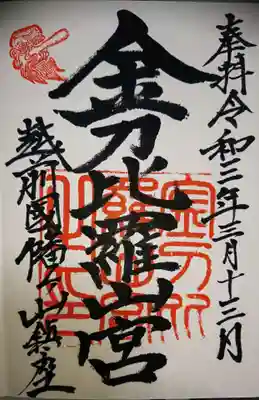 奉拝 令和三年三月十三日
金刀比羅山宮
越前國幡ヶ山鎮座